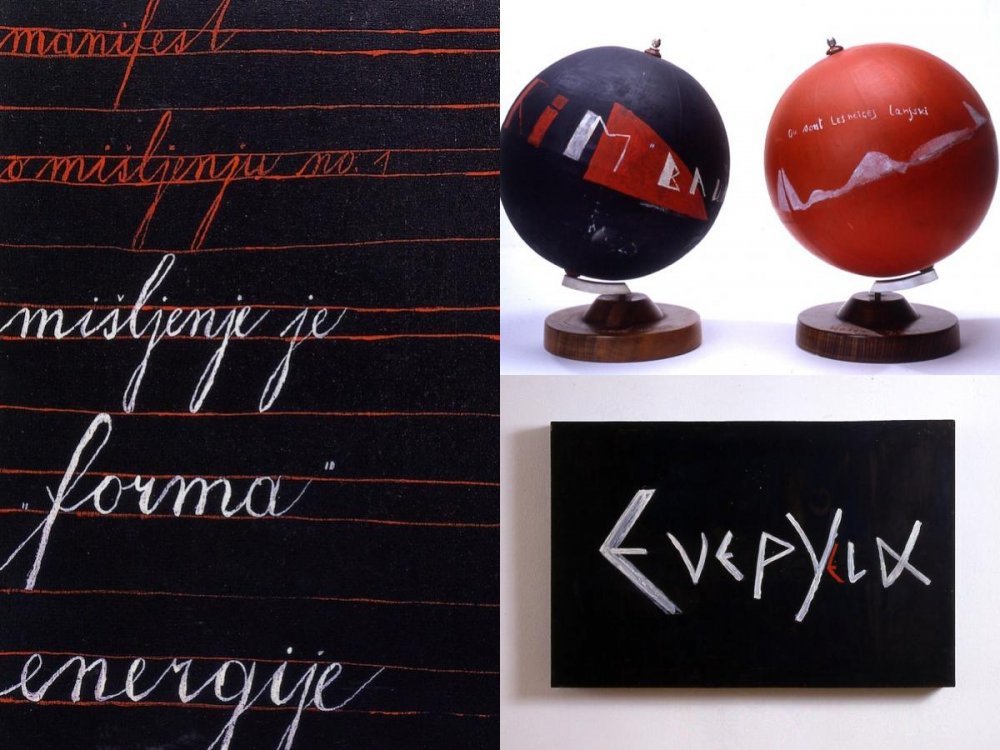 manifest
o mišljenju no. 1
mišljenje je
„forma”
energije
TiM
Ou sont Les neiges Lanjski
Ενεργεια